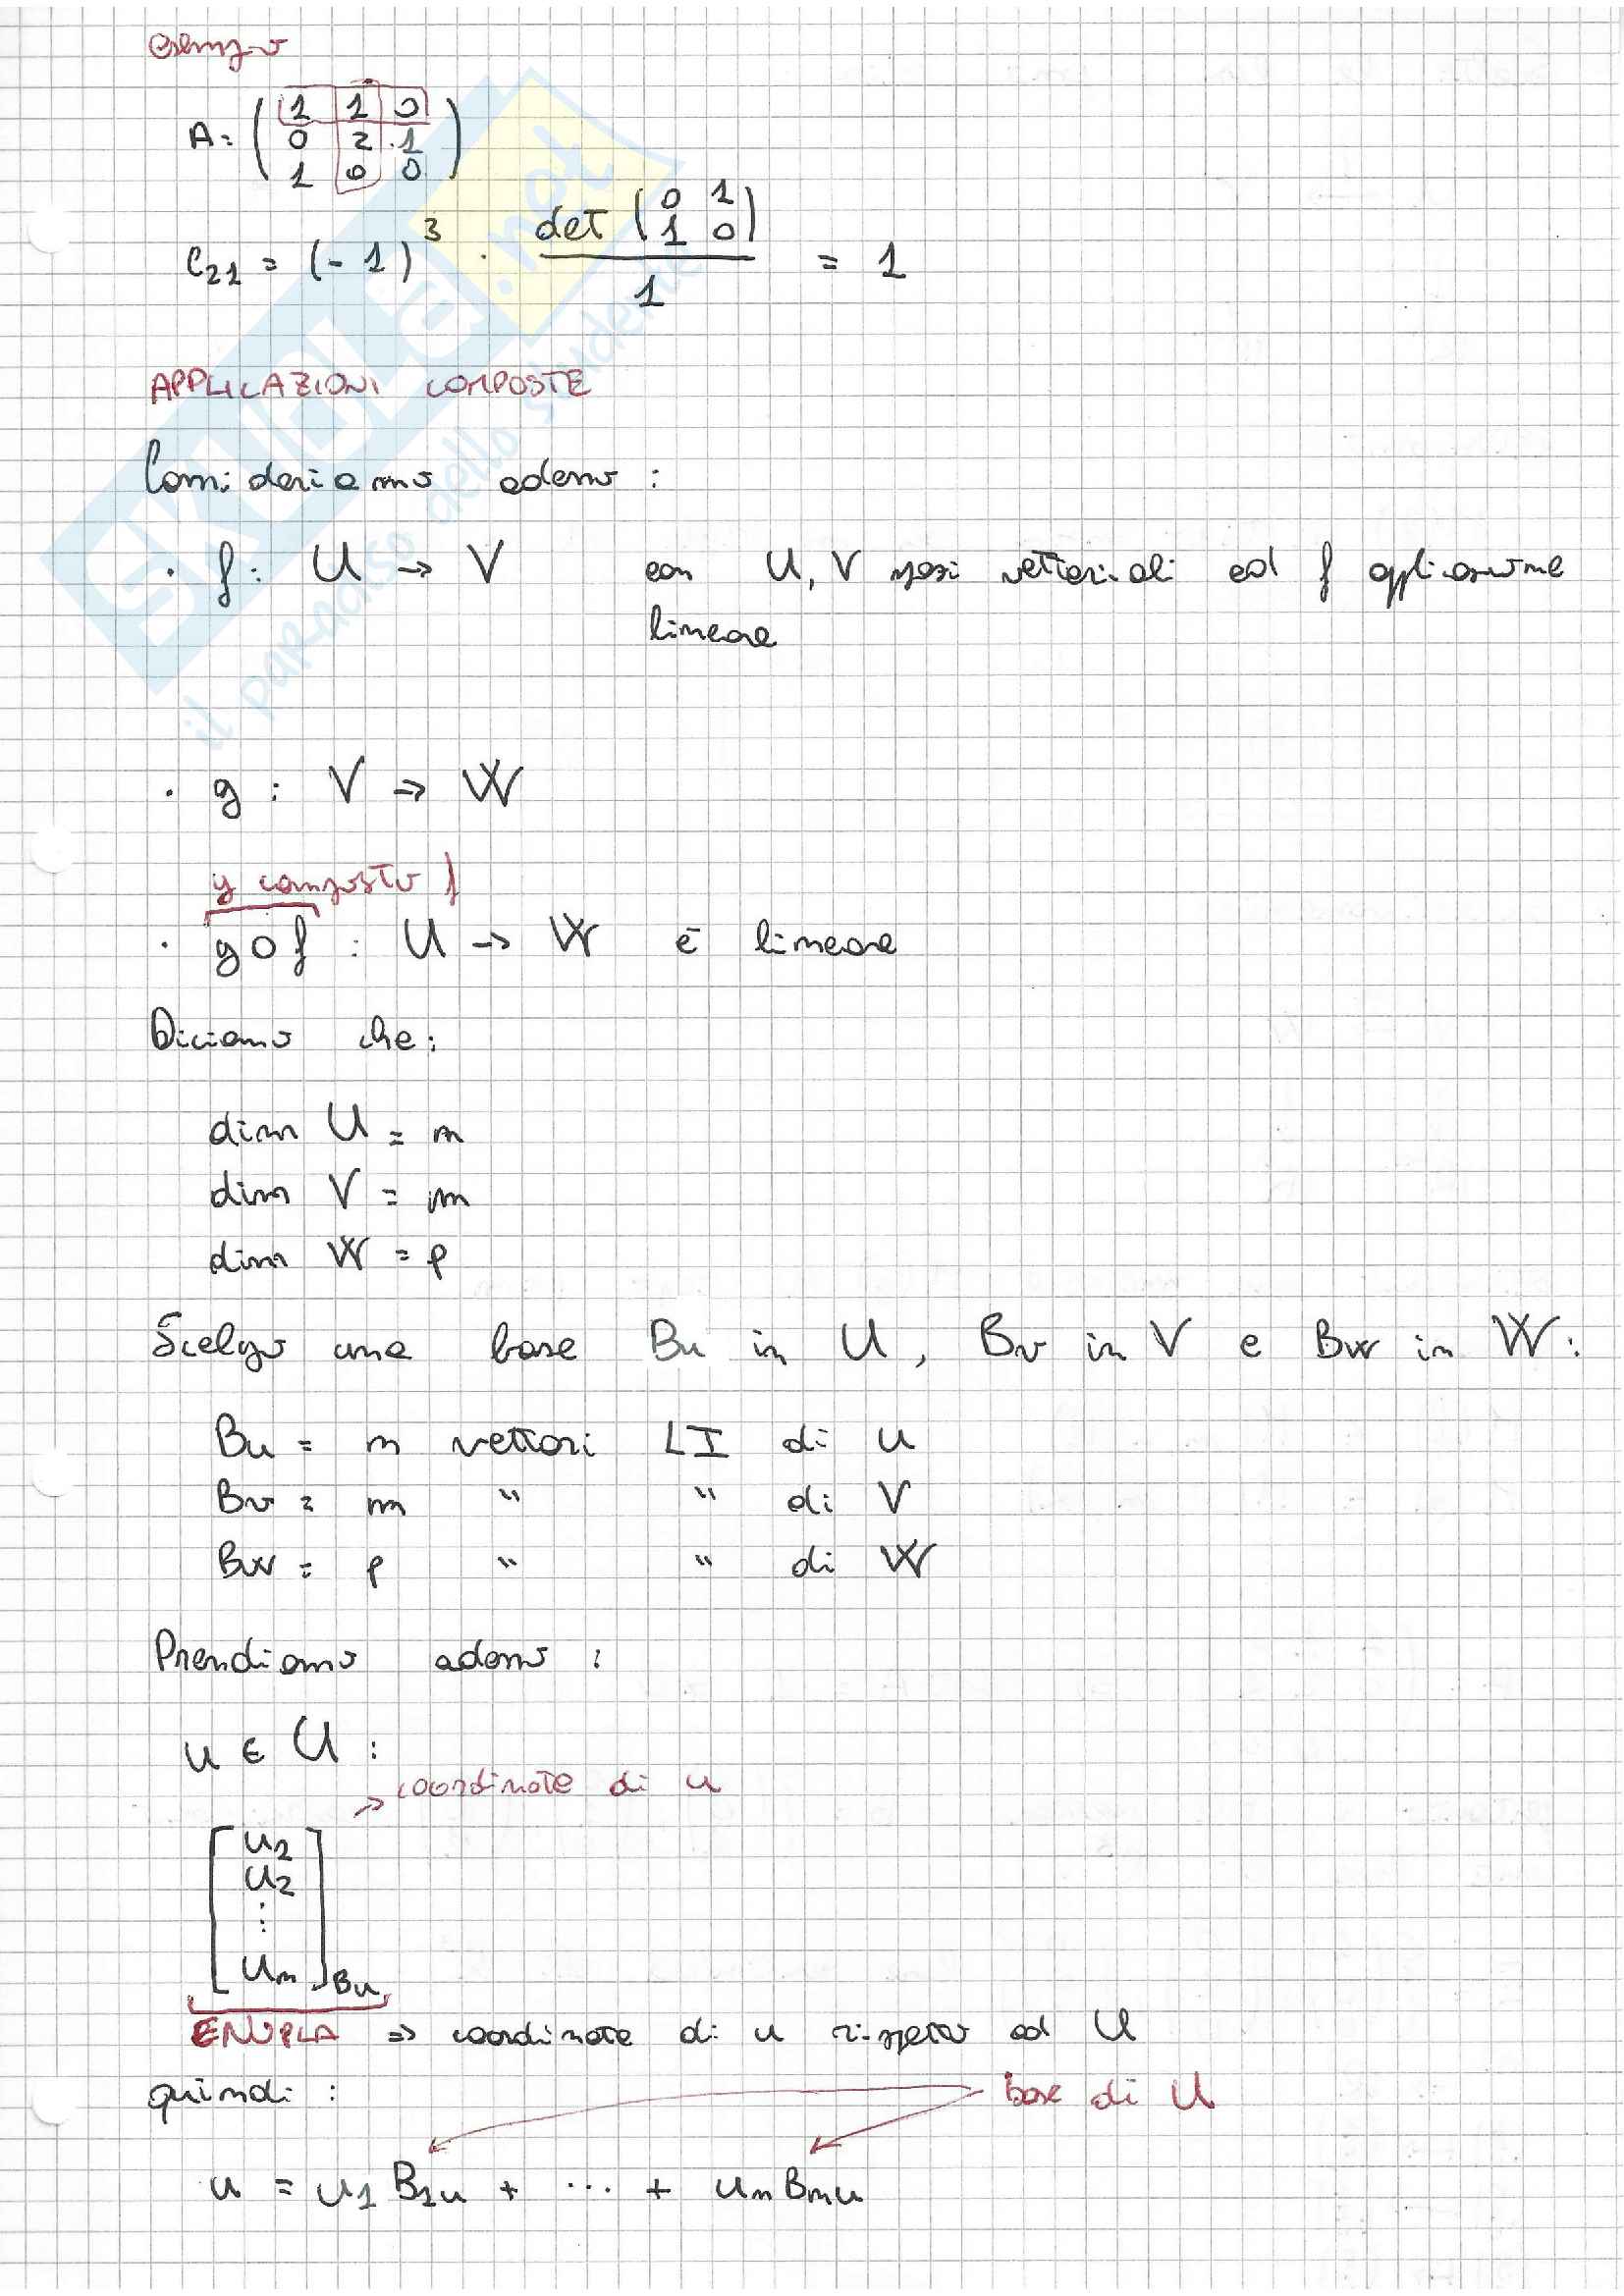 esempio
A = ( 1 1 0
0 2 1
1 0 0 )
C21 = (-1)^3 · det ( 0 1
1 0 ) / 1 = 1
APPLICAZIONI COMPOSTE
Consideriamo adesso :
· f : U → V con U, V spazi vettoriali ed f applicazione
lineare
· g : V → W
g composto f
· g o f : U → W è lineare
Diciamo che :
dim U = n
dim V = m
dim W = p
Scelgo una base Bu in U , Bv in V e Bw in W :
Bu = n vettori LI di U
Bv = m " " di V
Bw = p " " di W
Prendiamo adesso :
u ∈ U :
→ coordinate di u
[ u2
u2
⋮
un ]Bu
ENUPLA ⇒ coordinate di u rispetto ad U
quindi :
base di U
u = u1 B1u + ... + un Bnu
SKUOLA.net
il paradiso dello studente